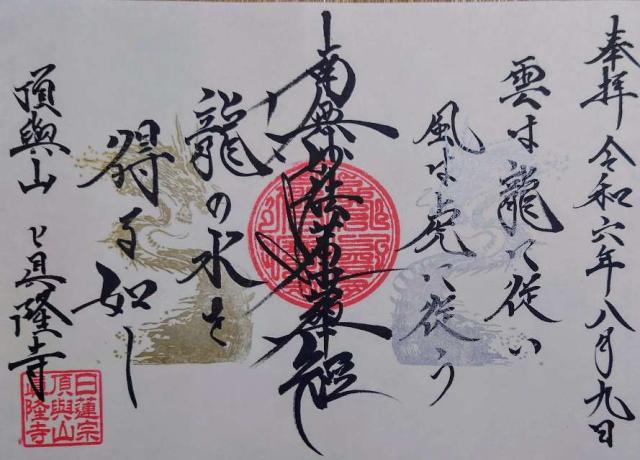 奉拝 令和六年八月九日
雲は龍に従い
風は虎に従う
南無妙法蓮華経
龍の水を
得る如し
頂與山 真隆寺
日蓮宗
頂與山
真隆寺